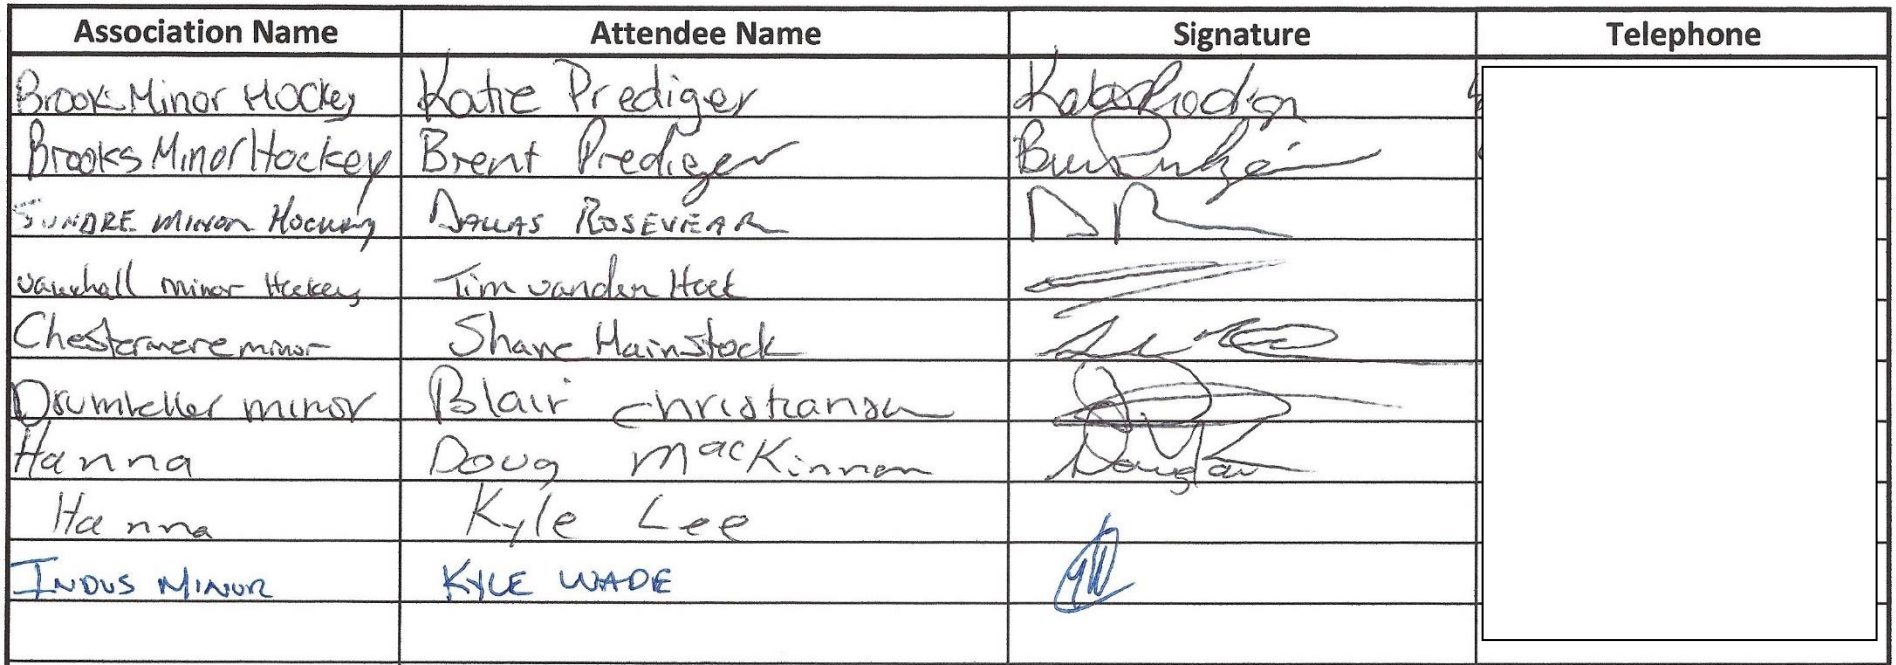 Association Name Attendee Name Signature Telephone
Brooks Minor Hockey Katie Prediger
Brooks Minor Hockey Brent Prediger
SUNDRE MINOR HOCKEY DALLAS ROSEVEAR
Vauxhall minor Hockey Tim vanden Hoek
Chestermere minor Shane Hainstock
Drumheller minor Blair Christianson
Hanna Doug MacKinnon
Hanna Kyle Lee
INDUS MINOR KYLE WADE